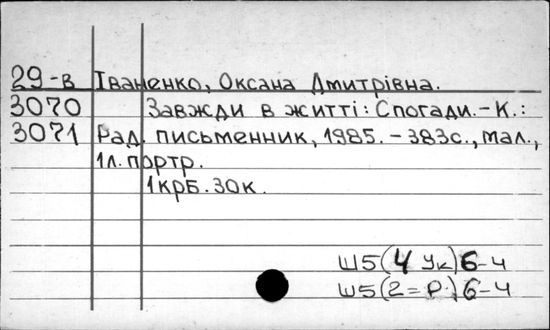 29-в Іваненко, Оксана Дмитрівна.
3070 Завжди в житті: Спогади.-К.:
3071 Рад. письменник, 1985. - 383с., мал.,
1л. портр.
1крб. 30к.
Ш5(4 Ук)6-4
Ш5(2=Р.)6-4